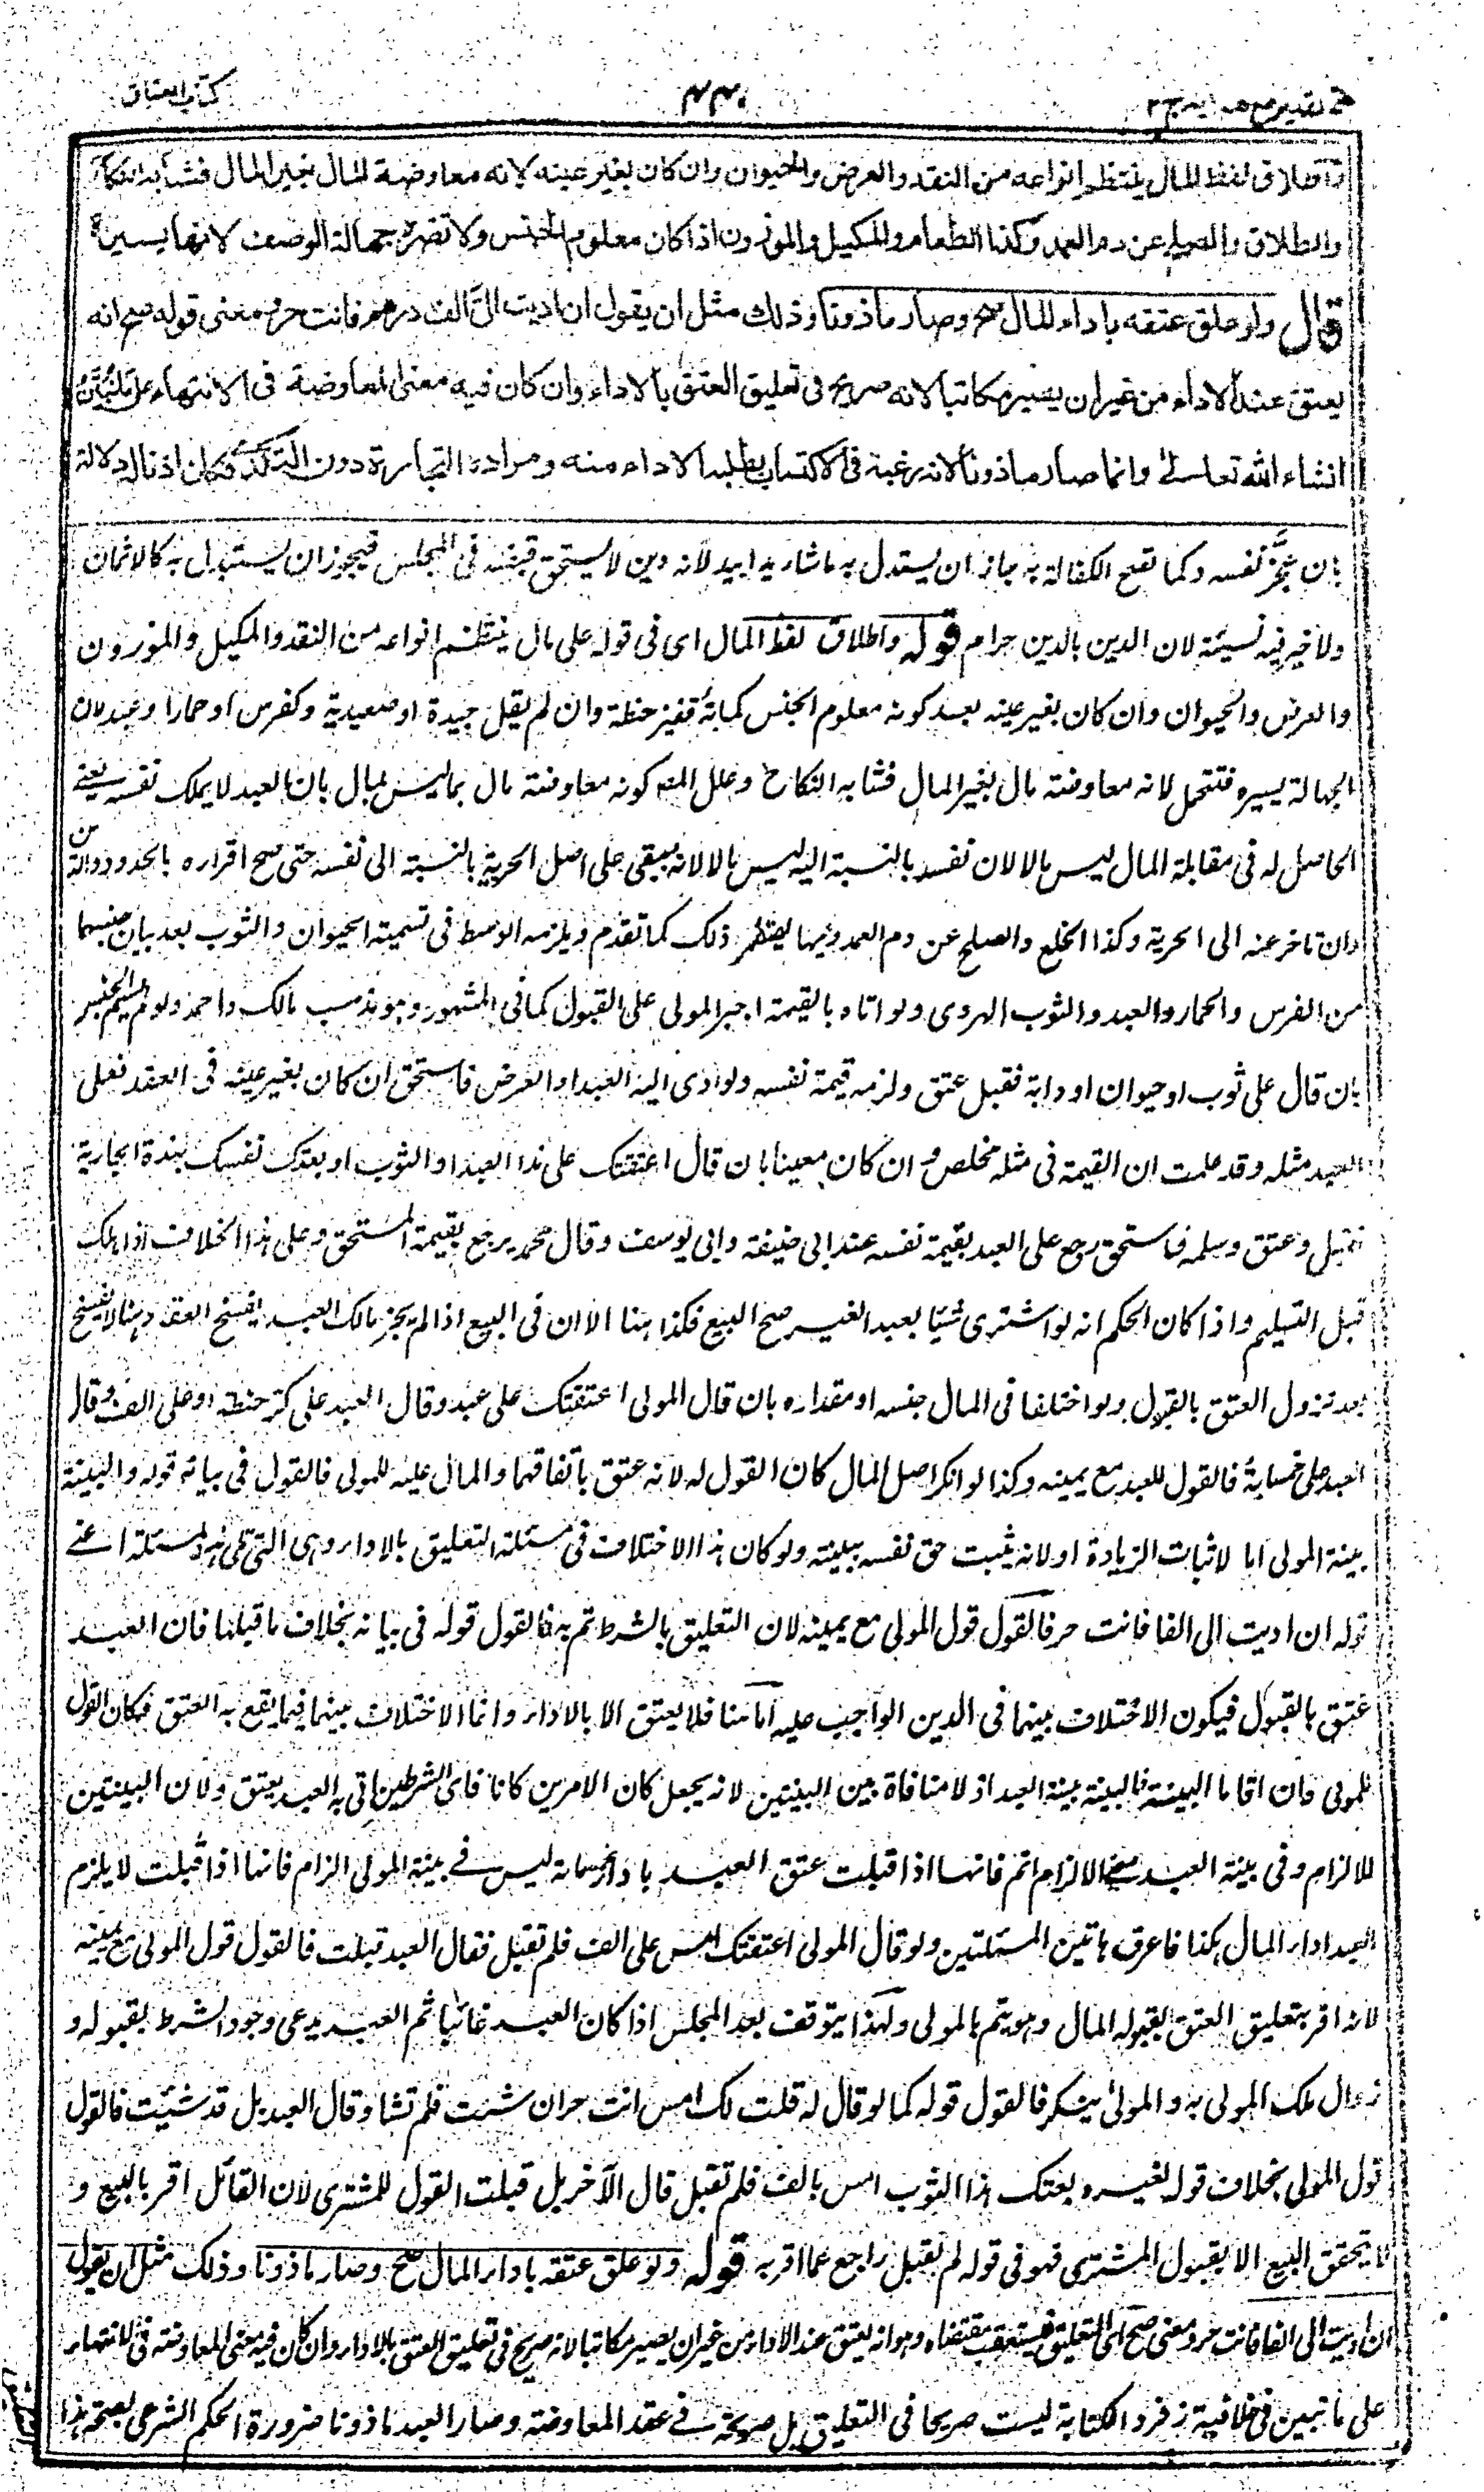 فتح القدير مع هدايه ج ٢
٤٤٠
كتاب العتاق
واطلاق لفظ المال ينتظم انواعه من النقد والعرض والحيوان وان كان بغير عينه لانه معاوضة المال بغير المال فشابه النكاح
والطلاق والصلح عن دم العمد وكذا الطعام والمكيل والموزون اذا كان معلوم الجنس ولا تضره جهالة الوصف لانها يسيرة
قال ولو علق عتقه باداء المال صح وصار ماذونا وذلك مثل ان يقول ان اديت الىّ الف درهم فانت حر ومعنى قوله صح انه
يعتق عند الاداء من غير ان يصير مكاتبا لانه صريح فى تعليق العتق بالاداء وان كان فيه معنى المعاوضة فى الانتهاء على ما نبين
انشاء الله تعالى وانما صار ماذونا لانه رغبه فى الاكتساب بطلبه الاداء منه ومراده التجارة دون التكدى فكان اذنا له دلالة
بان عجّز نفسه وكما تصح الكفالة به جاز ان يستبدل به ما شاء يدا بيد لانه دين لا يستحق قبضه فى المجلس فيجوز ان يستبدل به كالاثمان
ولا خير فيه نسيئة لان الدين بالدين حرام قوله واطلاق لفظ المال اى فى قوله على مال ينتظم انواعه من النقد والمكيل والموزون
والعرض والحيوان وان كان بغير عينه بعد كونه معلوم الجنس كمائة قفيز حنطة وان لم يقل جيدة او صعيدية وكفرس او حمار او عبد لان
الجهالة يسيرة فتتحمل لانه معاوضة مال بغير المال فشابه النكاح وعلل المصـ كونه معاوضة مال بما ليس بمال بان العبد لا يملك نفسه يعنى
الحاصل له فى مقابلة المال ليس مالا لان نفسه بالنسبة اليه ليس مالا لانه يبقى على اصل الحرية بالنسبة الى نفسه حتى صح اقراره بالحدود والدين
وان تاخر عنه الى الحرية وكذا الخلع والصلح عن دم العمد وفيها ينتظم ذلك كما تقدم ويلزمه الوسط فى تسمية الحيوان والثوب بعد بيان جنسهما
من الفرس والحمار والعبد والثوب الهروى ولو اتاه بالقيمة اجبر المولى على القبول كما فى المشهور وهو مذهب مالك واحمد ولو لم يسم الجنس
بان قال على ثوب او حيوان او دابة فقبل عتق ولزمه قيمة نفسه ولو ادى اليه العبد او العرض فاستحق ان كان بغير عينه فى العقد فعلى
العبد مثله وقد علمت ان القيمة فى مثله مخلص وان كان معينا بان قال اعتقتك على هذا العبد او الثوب او بعتك نفسك بهذه الجارية
فقبل وعتق وسلمه فاستحق رجع على العبد بقيمة نفسه عند ابى حنيفة وابى يوسف وقال محمد يرجع بقيمة المستحق وعلى هذا الخلاف اذا هلك
قبل التسليم واذا كان الحكم انه لو اشترى شيئا بعبد الغير صح البيع فكذا هنا الا ان فى البيع اذا لم يجز مالك العبد يفسخ العقد وهنا لا يفسخ
بعد نزول العتق بالقبول ولو اختلفا فى المال جنسه او مقداره بان قال المولى اعتقتك على عبد وقال العبد على كر حنطة او على الف وقال
العبد على خمسمائة فالقول للعبد مع يمينه وكذا لو انكر اصل المال كان القول له لانه عتق باتفاقهما والمال عليه للمولى فالقول فى بيانه قوله والبينة
بينة المولى اما لاثبات الزيادة او لانه يثبت حق نفسه ببينة ولو كان هذا الاختلاف فى مسئلة التعليق بالاداء وهى التى تلى هذه المسئلة اعنى
قوله ان اديت الى الفا فانت حر فالقول قول المولى مع يمينه لان التعليق بالشرط تم به فالقول قوله فى بيانه بخلاف ما قبلها فان العبد
عتق بالقبول فيكون الاختلاف بينهما فى الدين الواجب عليه اما هنا فلا يعتق الا بالاداء وانما الاختلاف بينهما فيما يقع به العتق فكان القول
للمولى وان اقاما البينة فالبينة بينة العبد اذ لا منافاة بين البينتين لانه يجعل كان الامرين كانا فاى الشرطين اتى به العبد يعتق ولان البينتين
للالزام وفى بينة العبد معنى الالزام اتم فانها اذا قبلت عتق العبد باداء خمسمائة ليس فى بينة المولى الزام فانها اذا قبلت لا يلزم
العبد اداء المال هكذا فاعرق هاتين المسئلتين ولو قال المولى اعتقتك امس على الف فلم تقبل فقال العبد قبلت فالقول قول المولى مع يمينه
لانه اقر بتعليق العتق بقبوله المال وهو يتم بالمولى ولهذا يتوقف بعد المجلس اذا كان العبد غائبا ثم العبد يدعى وجود الشرط بقبوله و
زوال ملك المولى به والمولى ينكر فالقول قوله كما لو قال له قلت لك امس انت حر ان شئت فلم تشا وقال العبد بل قد شئت فالقول
قول المولى بخلاف قوله لغيره بعتك هذا الثوب امس بالف فلم تقبل قال الآخر بل قبلت القول للمشترى لان القائل اقر بالبيع و
لا يتحقق البيع الا بقبول المشترى فهو فى قوله لم تقبل راجع عما اقر به قوله ولو علق عتقه باداء المال صح وصار ماذونا وذلك مثل ان يقول
ان اديت الى الفا فانت حر ومعنى صح اى التعليق فيستعقب مقتضاه وهو انه يعتق عند الاداء من غير ان يصير مكاتبا لانه صريح فى تعليق العتق بالاداء وان كان فيه معنى المعاوضة فى الانتهاء
على ما تبين فى خلافية زفر والكتابة ليست صريحا فى التعليق بل صريحة فى عقد المعاوضة وصار العبد ماذونا ضرورة الحكم الشرعى بصحة هذا